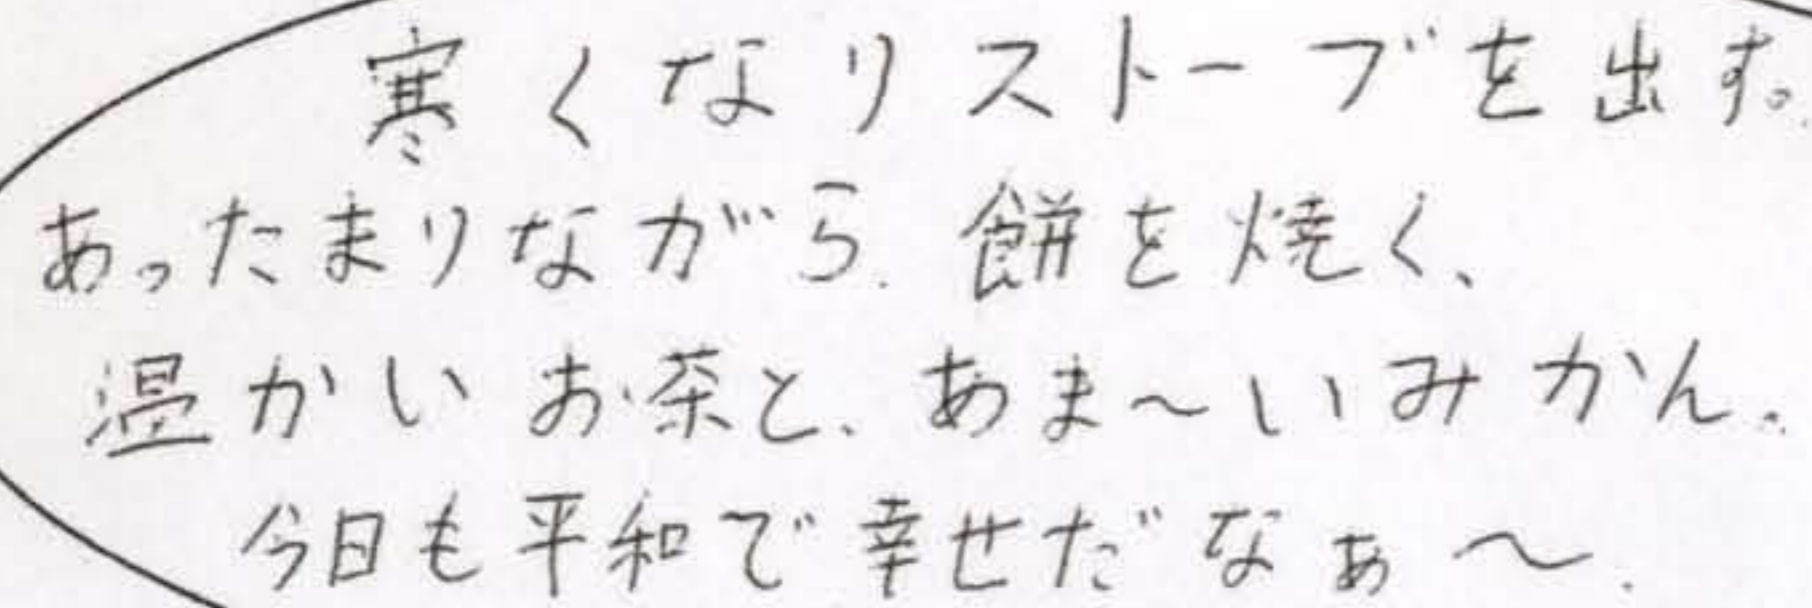 寒くなりストーブを出す。
あったまりながら、餅を焼く、
温かいお茶と、あま～いみかん。
今日も平和で幸せだなぁ～。